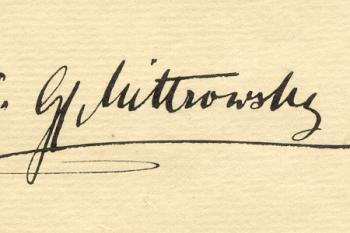 Gf Mittrowsky